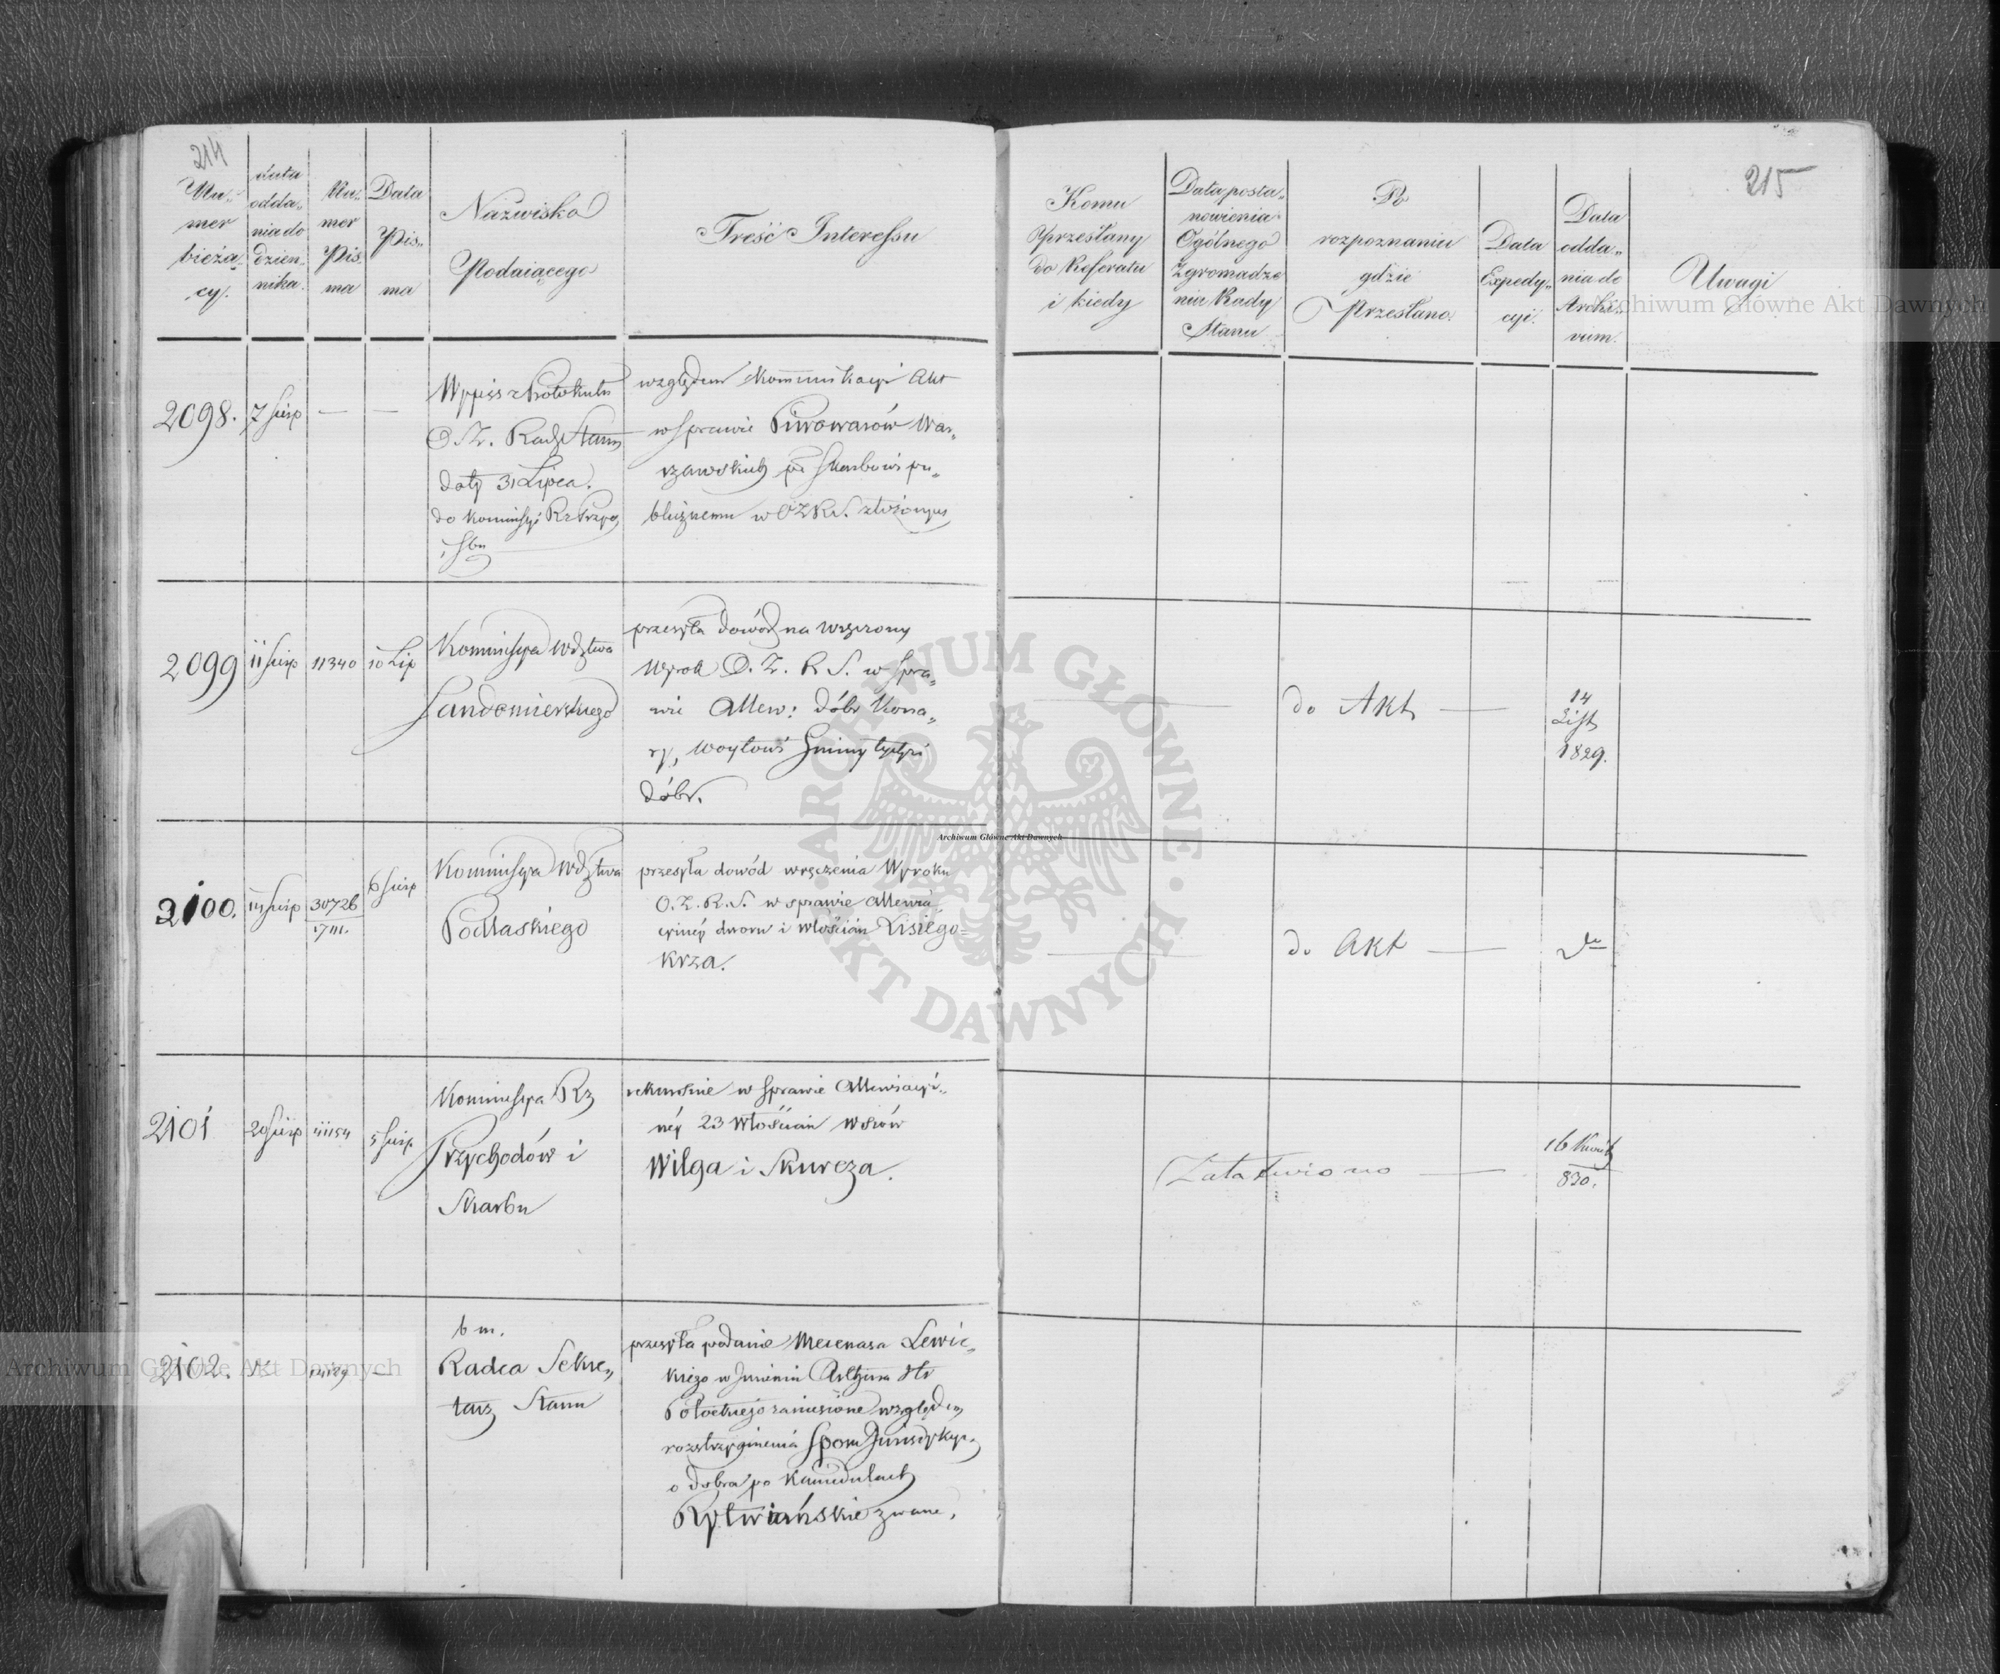 214
Nu-
mer
bieżą-
cy.
Data
odda-
nia do
dzien-
nika.
Nu-
mer
Pis-
ma
Data
Pis-
ma
Nazwisko
Podaiącego
Treść Interessu
Komu
przesłany
do Referatu
i kiedy
Data posta-
nowienia
Ogólnego
Zgromadze
nia Rady
Stanu
Po
rozpoznaniu
gdzie
Przesłano.
Data
Expedy-
cyi.
Data
odda-
nia do
Archi-
vum.
Uwagi
215
2098.
7 Sierp
—
—
Wypis z Protokułu
O.Z. Rady Stanu
daty 31 Lipca.
do Kommissyi Rz Przy
i Sbu
względem Kommunikacyi Akt
w sprawie Piwowarów War-
szawskich po Skarbowi pu-
blicznemu w OZRS. złożonych
2099
11 Sierp
11340
10 Lip
Kommissya Wdztwa
Sandomierskiego
przesyła dowód na wręczony
Wyrok O. Z. R. S. w spra-
wie Mew: dóbr Kona-
ry, Woytowi Gminy tychże
dóbr.
do Akt
14
List
1829.
2100.
14 Sierp
30726
17111.
6 Sierp
Kommissya Wdztwa
Podlaskiego
przesyła dowód wręczenia Wyroku
O. Z. R. S. w sprawie
dworu i włościan Lisiégo-
Krza.
do Akt
do
2101
20 Sierp
41154
5 Sierp.
Kommissya Rz
Przychodów i
Skarbu
w sprawie
néy 23 Włościan wsiów
Wilga i Skurcza.
Załatwiono
16 Kwiet
830.
2102.
—
b m.
Radca Sekre-
tarz Stanu
przesyła podanie Mecenasa Lewic-
kiego w Imieniu Arthura Hr
Potockiego zaniesione względem
rozstrzygnienia Sporu Jurisdykcyi
o dobra po Kamedułach
Rytwiańskie zwane,
Archiwum Główne Akt Dawnych
Archiwum Główne Akt Dawnych
Archiwum Główne Akt Dawnych
ARCHIWUM GŁÓWNE AKT DAWNYCH